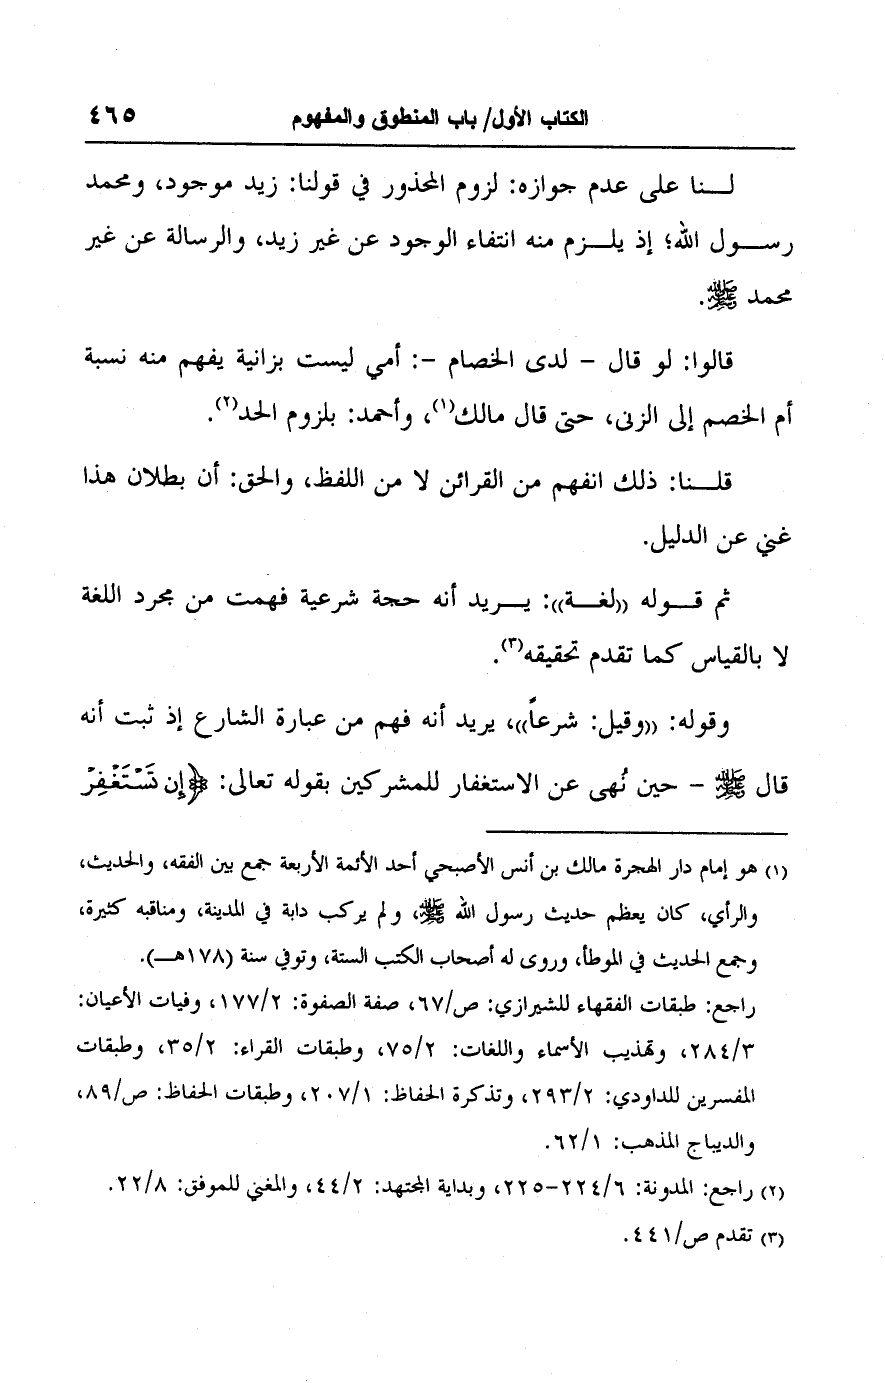 الكتاب الأول/ باب المنطوق والمفهوم ٤٦٥
لـــنا على عدم جوازه: لزوم المحذور في قولنا: زيد موجود، ومحمد
رســـول الله؛ إذ يلـــزم منه انتفاء الوجود عن غير زيد، والرسالة عن غير
محمد ﷺ.
قالوا: لو قال - لدى الخصام -: أمي ليست بزانية يفهم منه نسبة
أم الخصم إلى الزنى، حتى قال مالك(١)، وأحمد: بلزوم الحد(٢).
قلـــنا: ذلك انفهم من القرائن لا من اللفظ، والحق: أن بطلان هذا
غني عن الدليل.
ثم قـــوله ((لغـــة)): يـــريد أنه حجة شرعية فهمت من مجرد اللغة
لا بالقياس كما تقدم تحقيقه(٣).
وقوله: ((وقيل: شرعاً))، يريد أنه فهم من عبارة الشارع إذ ثبت أنه
قال ﷺ - حين نُهى عن الاستغفار للمشركين بقوله تعالى: ﴿إِن تَسْتَغْفِرْ
(١) هو إمام دار الهجرة مالك بن أنس الأصبحي أحد الأئمة الأربعة جمع بين الفقه، والحديث،
والرأي، كان يعظم حديث رسول الله ﷺ، ولم يركب دابة في المدينة، ومناقبه كثيرة،
وجمع الحديث في الموطأ، وروى له أصحاب الكتب الستة، وتوفي سنة (١٧٨هـــ).
راجع: طبقات الفقهاء للشيرازي: ص/٦٧، صفة الصفوة: ١٧٧/٢، وفيات الأعيان:
٢٨٤/٣، وتهذيب الأسماء واللغات: ٧٥/٢، وطبقات القراء: ٣٥/٢، وطبقات
المفسرين للداودي: ٢٩٣/٢، وتذكرة الحفاظ: ٢٠٧/١، وطبقات الحفاظ: ص/٨٩،
والديباج المذهب: ٦٢/١.
(٢) راجع: المدونة: ٢٢٤/٦-٢٢٥، وبداية المجتهد: ٤٤/٢، والمغني للموفق: ٢٢/٨.
(٣) تقدم ص/٤٤١.